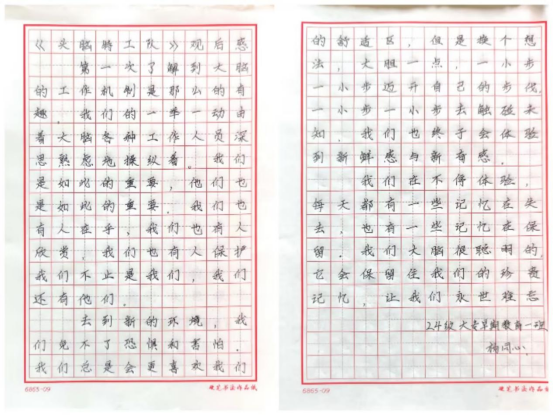 《头脑特工队》观后感
第一次了解到大脑
的工作机制是那么的有
趣。我们的一举一动由
着大脑各种工作人员深
思熟虑地操纵着。我们
是如此的重要，他们也
是如此的重要。我们也
有人在乎，我们也有人
欣赏，我们也有人保护
我们不止是我们，我们
还有他们。
去到新的环境，我
们免不了恐惧和害怕。
我们总是会更喜欢我们
硬笔书法作品纸
的舒适区，但是换个想
法，大胆一点，一小步
一小步迈开自己的步伐，
一小步一小步去触碰未
知，我们也终于会体验
到新鲜感与新奇感。
我们在不停体验，
每天都有一些记忆在失
去，也有一些记忆在保
留。我们大脑很聪明的，
它会保留住我们的珍贵
记忆，让我们永世难忘
24级大专早期教育一班
硬笔书法作品